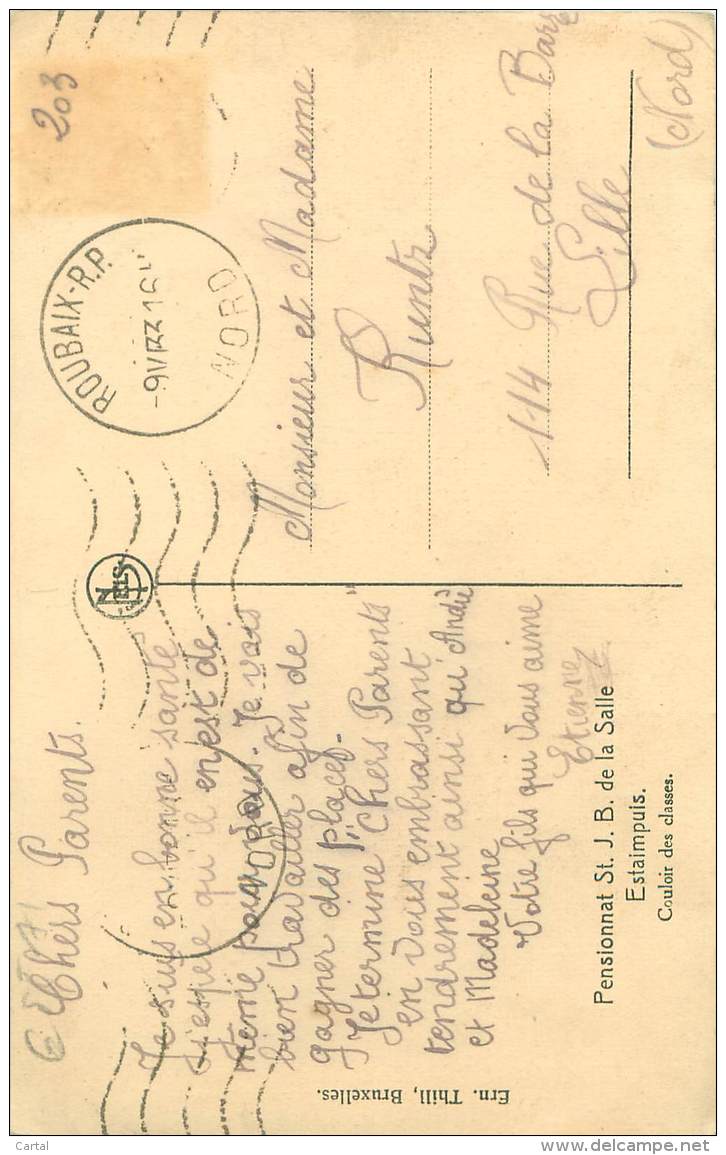 Chers Parents.
Je suis en bonne santé
J'espère qu'il en est de
même pour vous. Je vais
bien travailler afin de
gagner des places.
Je termine Chers Parents
en vous embrassant
tendrement ainsi qu'André
et Madeleine
Votre fils qui vous aime
Etienne
Pensionnat St. J. B. de la Salle
Estaimpuis.
Couloir des classes.
Ern. Thill, Bruxelles.
NELS
203
ROUBAIX-R.P.
NORD
NORD
Monsieur et Madame
Kuntz
114 Rue de la Barre
Lille
(Nord)
Cartal
delcampe.net